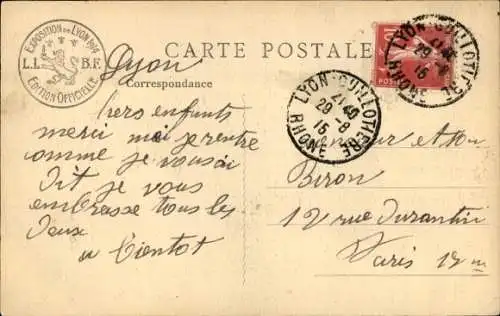 EXPOSITION DE LYON 1914
L.L. B.F.
EDITION OFFICIELLE
CARTE POSTALE
Correspondance
Lyon
chers enfants
merci moi je rentre
comme je vous ai
dit je vous
embrasse tous les
deux
a bientot
LYON GUILLOTIERE
21 45
29 - 8
15
RHONE
LYON GUILLOTIERE
29 - 8
15
RHONE
10
POSTES
Monsieur et Mm
Biron
12 rue Durantin
Paris 12 m